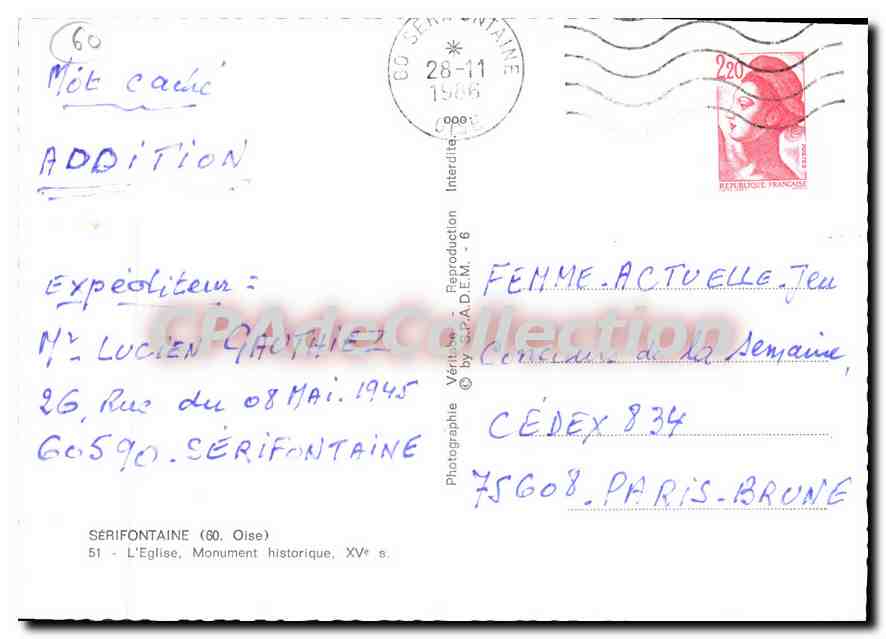 60
Mot caché
ADDITION
Expéditeur =
Mr LUCIEN GAUTHIEZ
26, Rue du 08 MAI. 1945
60590. SÉRIFONTAINE
SÉRIFONTAINE (60. Oise)
51 - L'Eglise, Monument historique, XVe s.
Photographie Véritable - Reproduction Interdite.
© by S.P.A.D.E.M. - 6
60 SERIFONTAINE
28-11
1986
OISE
2,20
POSTES
REPUBLIQUE FRANÇAISE
FEMME. ACTUELLE. Jeu
Concours de la Semaine,
CÉDEX 834
75608. PARIS-BRUNE
CPAdeCollection